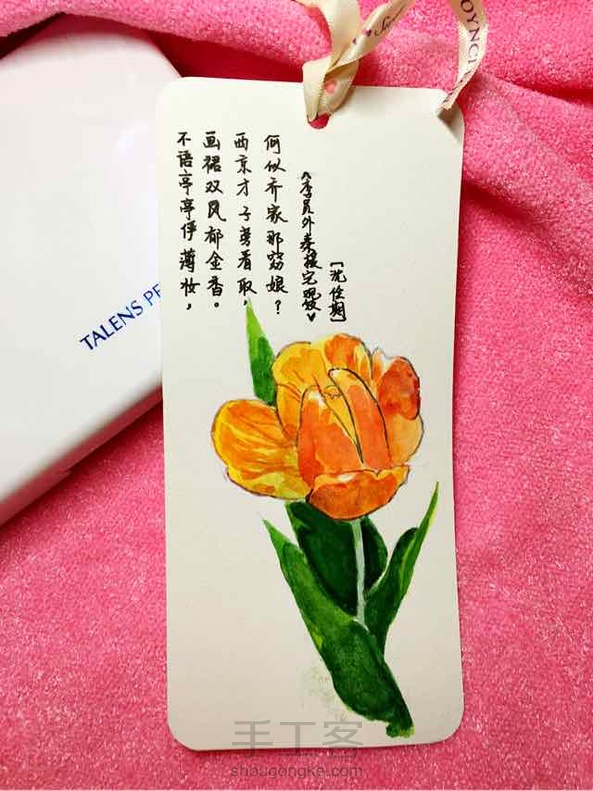 不语亭亭俨薄妆，
画裙双凤郁金香。
西京才子旁看取，
何似乔家那窈娘？
《李员外秦援宅观妓》
[沈佺期]
TALENS PE
手工客
shougongke.com